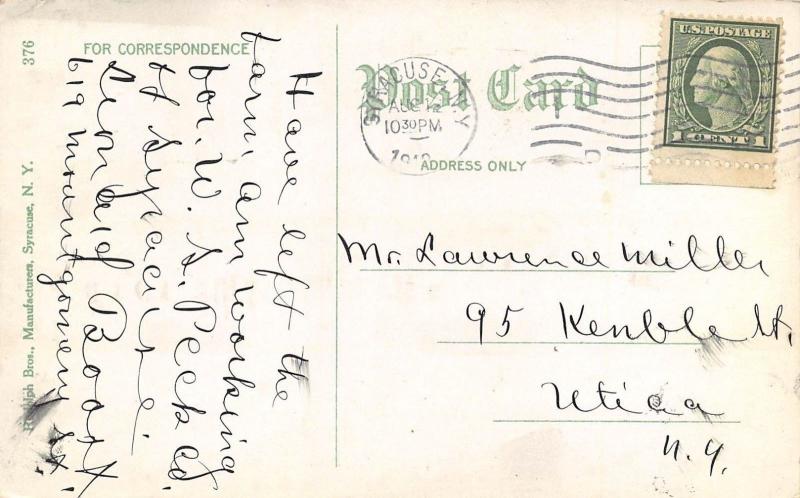 376
FOR CORRESPONDENCE
Post Card
ADDRESS ONLY
U.S. POSTAGE
1 CENT 1
SYRACUSE, N.Y.
AUG 12
10 30 PM
Have left the
farm, am working
for W. S. Peck Co.
of Syracuse.
Leonard Boost
619 Montgomery St.
Mr. Lawrence Miller
95 Kenble St.
Utica
N.Y.
Bros., Manufacturers, Syracuse, N. Y.